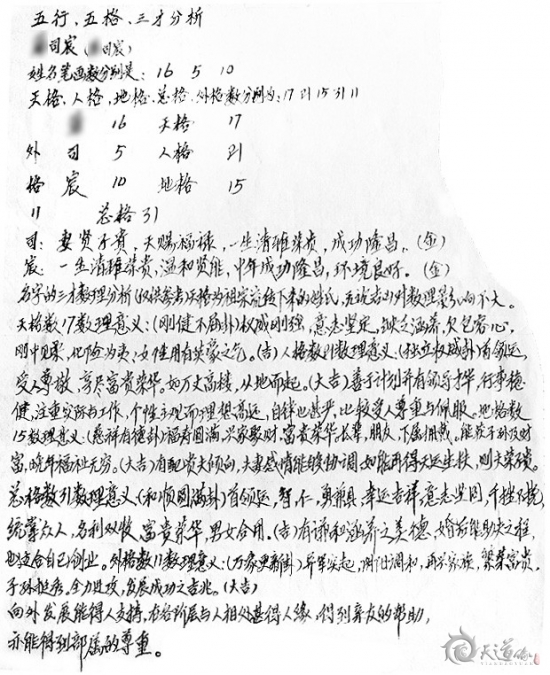 五行、五格、三才分析
司宸(司宸)
姓名笔画数分别是: 16 5 10
天格、人格、地格、总格、外格数分别为:17 21 15 31 11
16 天格 17
外 司 5 人格 21
格 宸 10 地格 15
11 总格31
司: 妻贤子贵,天赐福禄,一生清雅荣贵,成功隆昌。(金)
宸: 一生清雅荣贵,温和贤能,中年成功隆昌,环境良好。(金)
名字的三才数理分析(仅供参考)天格为祖宗流传下来的姓氏,无论吉凶对数理影响不大。
天格数17数理意义:(刚健不屈卦)权威刚强,意志坚定,缺乏涵养,欠包容心,
刚中见柔,化险为夷,女性用有失豪之气。(吉)人格数21数理意义:(独立权威卦)首领运,
受人尊敬,享尽富贵荣华。如万丈高楼,从地而起。(大吉)善于计划并有领导才华,行事稳
健,注重实际与工作,个性主观而理想高远,自律也甚严,比较受人尊重与佩服。地格数
15数理意义:(慈祥有德卦)福寿圆满,兴家聚财,富贵荣华长辈,朋友,下属拥戴。能荫子孙及财
富,晚年福祉无穷。(大吉)有配贵夫倾向,夫妻感情能够协调,如能再得天运生扶,则大荣贵。
总格数31数理意义(和顺圆满卦)首领运,智、仁、勇兼具,幸运吉祥,意志坚固,千挫不挠,
统率众人,名利双收,富贵荣华,男女合用。(吉)有谦和涵养之美德,婚前能助夫之程,
也适合自己创业。外格数11数理意义:(万象更新卦)异军突起,阴阳调和,再兴家族,繁荣富贵,
子孙挺秀。全力进攻,发展成功之吉兆。(大吉)
向外发展能得人支持,在各阶层与人相处甚得人缘,得到亲友的帮助,
亦能得到部属的尊重。
天道仙